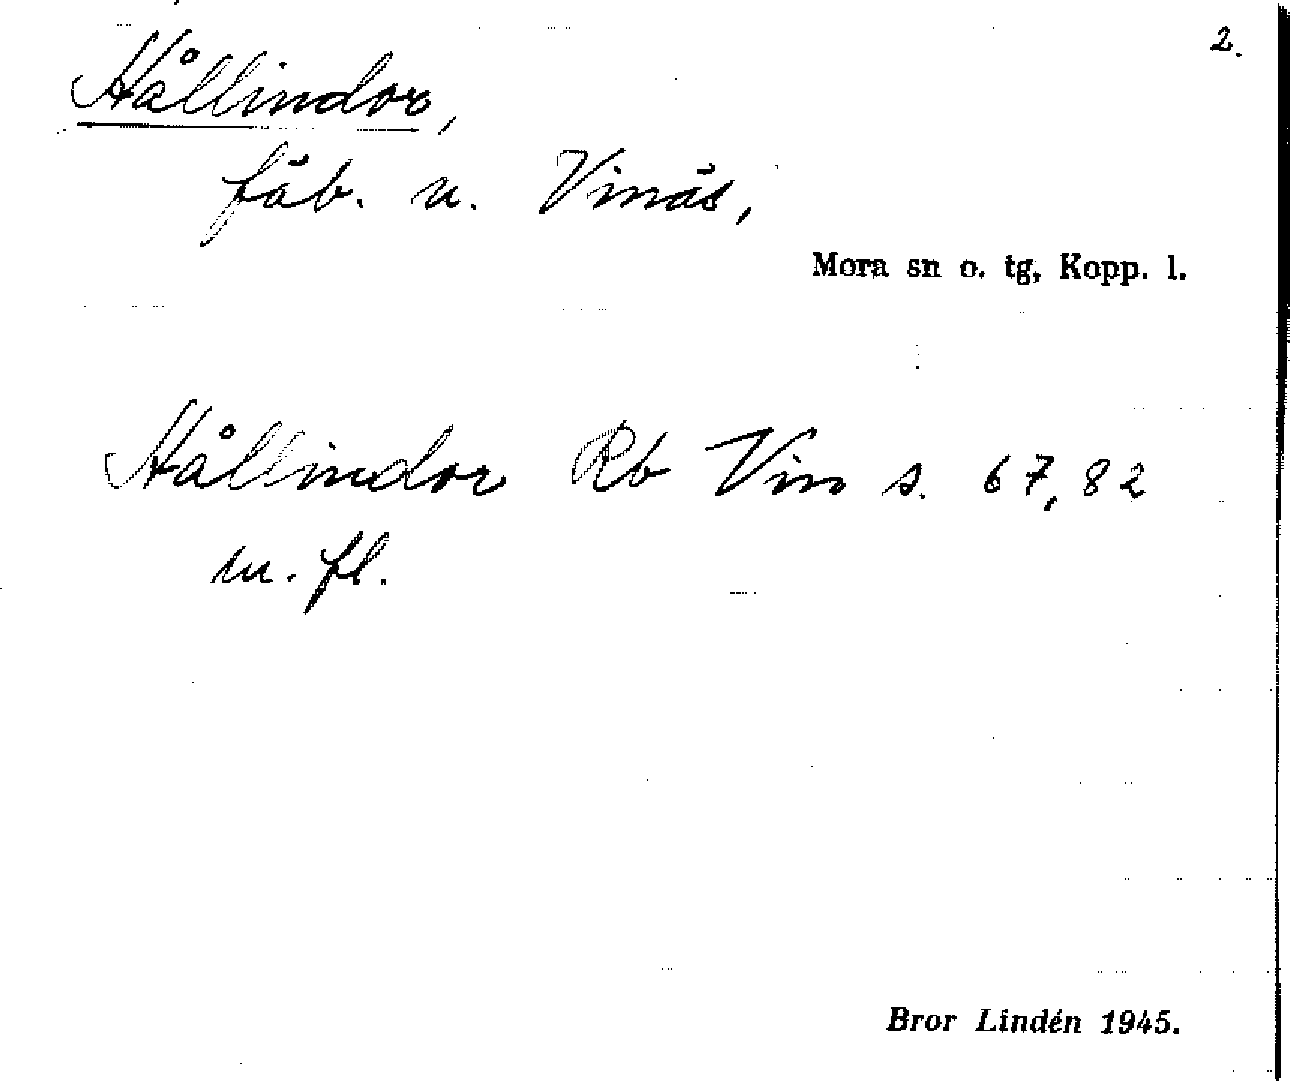 2.
Hållindor,
fäb. u. Vinäs,
Mora sn o. tg, Kopp. l.
Hållindor Rb Vin s. 67, 82
m. fl.
Bror Lindén 1945.